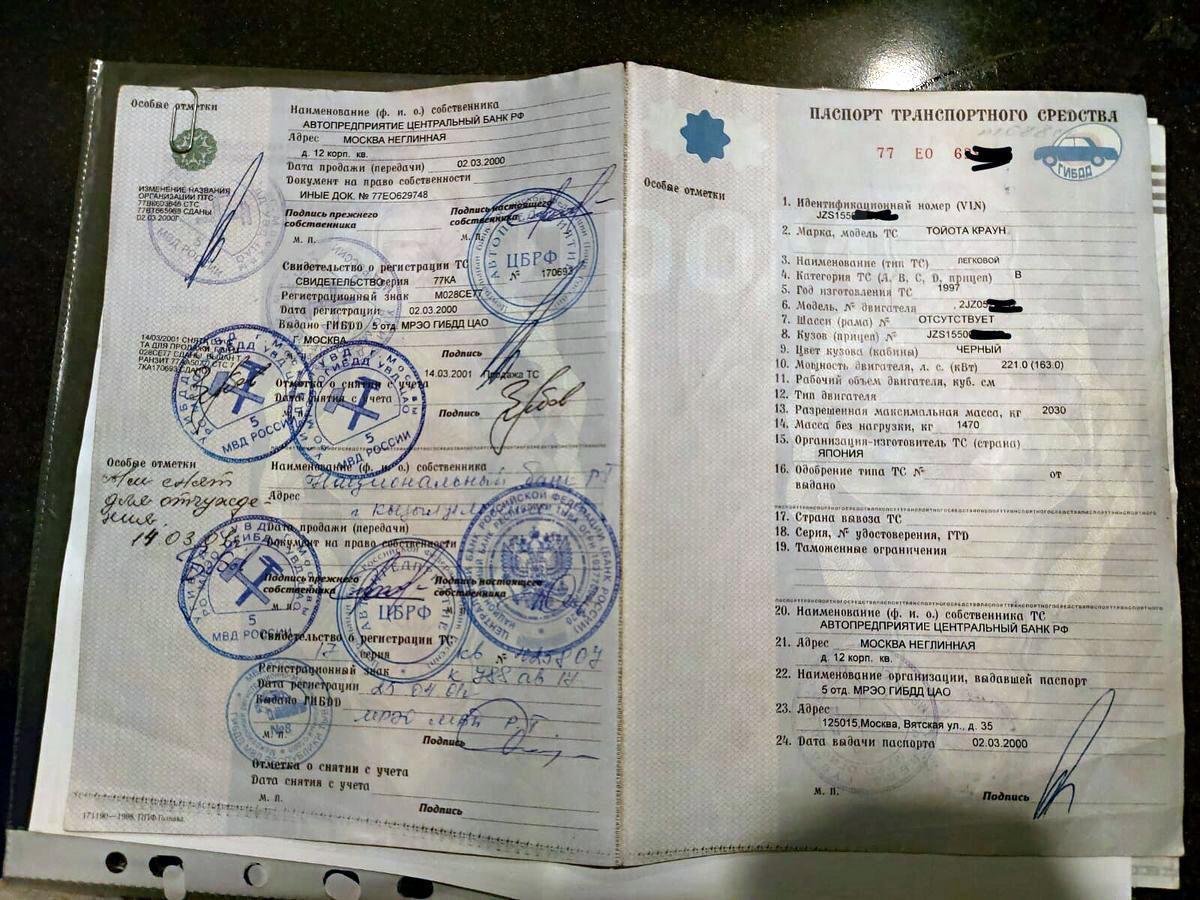 Особые отметки
Наименование (ф. и. о.) собственника
АВТОПРЕДПРИЯТИЕ ЦЕНТРАЛЬНЫЙ БАНК РФ
Адрес МОСКВА НЕГЛИННАЯ
д. 12 корп. кв.
Дата продажи (передачи) 02.03.2000
Документ на право собственности
ИНЫЕ ДОК. № 77ЕО629748
ИЗМЕНЕНИЕ НАЗВАНИЯ
ОРГАНИЗАЦИИ ПТС
СДАНЫ
02.03.2000Г
Подпись прежнего собственника
Подпись настоящего собственника
М. П.
ЦБРФ
Свидетельство о регистрации ТС
СВИДЕТЕЛЬСТВО серия 77КА № 170693
Регистрационный знак М028СЕ77
Дата регистрации 02.03.2000
Выдано ГИБДД 5 отд. МРЭО ГИБДД ЦАО
Г. МОСКВА
Подпись
14/03/2001
Отметка о снятии с учета 14.03.2001 Продажа ТС
Дата снятия с учета
Подпись
5
МВД РОССИИ
5
МВД РОССИИ
Особые отметки
снят
для отчужде-
ния
14.03.
Наименование (ф. и. о.) собственника
Национальный банк РТ
Адрес
г. Кызыл
Дата продажи (передачи)
Документ на право собственности
Подпись прежнего собственника
Подпись настоящего собственника
М. П.
ЦБРФ
5
МВД РОССИИ
Свидетельство о регистрации ТС
17 серия КВ №
Регистрационный знак К 988 ав 17
Дата регистрации 25 04 01
Выдано ГИБДД
МРЭО РТ
№8
М. П.
Подпись
Отметка о снятии с учета
Дата снятия с учета
М. П.
Подпись
ПАСПОРТ ТРАНСПОРТНОГО СРЕДСТВА
77 ЕО
ГИБДД
Особые отметки
1. Идентификационный номер (VIN)
JZS155
2. Марка, модель ТС ТОЙОТА КРАУН
3. Наименование (тип ТС) ЛЕГКОВОЙ
4. Категория ТС (А, В, С, D, прицеп) В
5. Год изготовления ТС 1997
6. Модель, № двигателя , 2JZ05
7. Шасси (рама) № ОТСУТСТВУЕТ
8. Кузов (прицеп) № JZS1550
9. Цвет кузова (кабины) ЧЕРНЫЙ
10. Мощность двигателя, л. с. (кВт) 221.0 (163.0)
11. Рабочий объем двигателя, куб. см
12. Тип двигателя
13. Разрешенная максимальная масса, кг 2030
14. Масса без нагрузки, кг 1470
15. Организация-изготовитель ТС (страна)
ЯПОНИЯ
16. Одобрение типа ТС № от
выдано
17. Страна вывоза ТС
18. Серия, № удостоверения, ГТД
19. Таможенные ограничения
20. Наименование (ф. и. о.) собственника ТС
АВТОПРЕДПРИЯТИЕ ЦЕНТРАЛЬНЫЙ БАНК РФ
21. Адрес МОСКВА НЕГЛИННАЯ
д. 12 корп. кв.
22. Наименование организации, выдавшей паспорт
5 отд. МРЭО ГИБДД ЦАО
23. Адрес
125015,Москва, Вятская ул., д. 35
24. Дата выдачи паспорта 02.03.2000
М. П.
Подпись